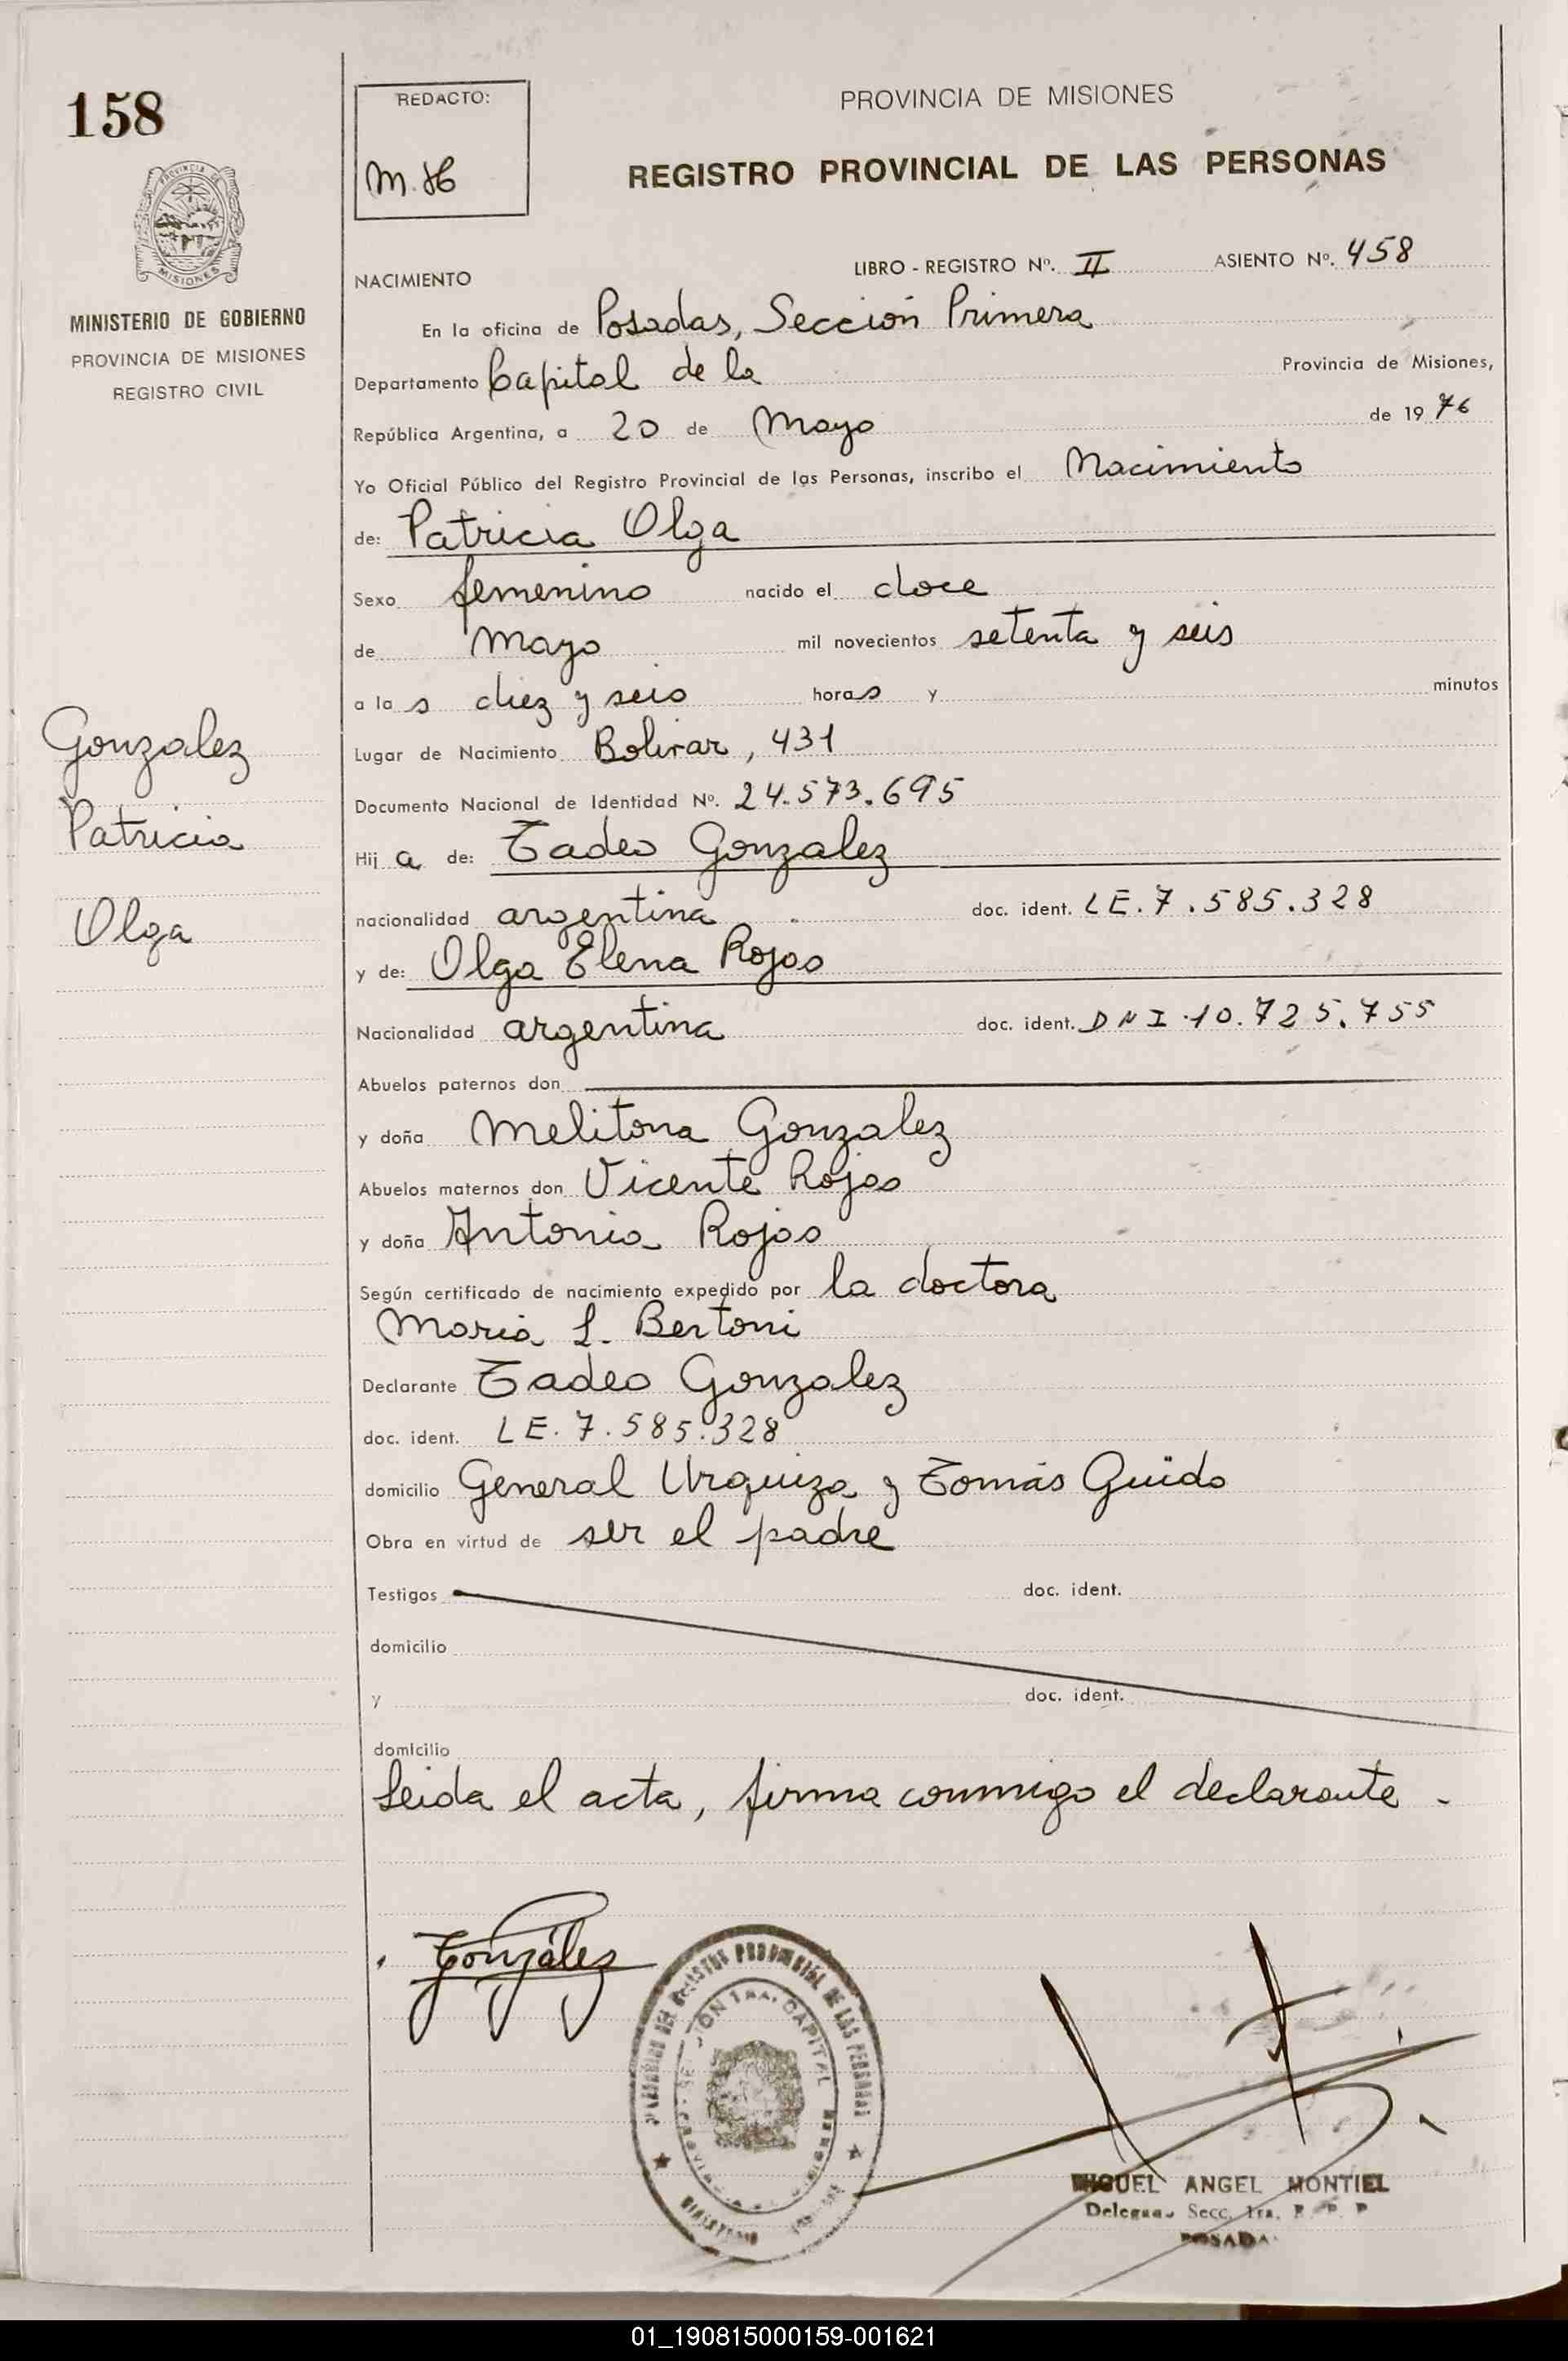 158
PROVINCIA DE
MISIONES
MINISTERIO DE GOBIERNO
PROVINCIA DE MISIONES
REGISTRO CIVIL
Gonzalez
Patricia
Olga
REDACTO:
M. H
PROVINCIA DE MISIONES
REGISTRO PROVINCIAL DE LAS PERSONAS
LIBRO - REGISTRO Nº. II ASIENTO Nº. 458
NACIMIENTO
En la oficina de Posadas, Sección Primera
Departamento Capital de la Provincia de Misiones,
República Argentina, a 20 de Mayo de 1976
Yo Oficial Público del Registro Provincial de las Personas, inscribo el Nacimiento
de: Patricia Olga
Sexo femenino nacido el doce
de Mayo mil novecientos setenta y seis
a la s diez y seis horas y minutos
Lugar de Nacimiento Bolivar, 431
Documento Nacional de Identidad Nº. 24.573.695
Hij a de: Tadeo Gonzalez
nacionalidad argentina doc. ident. LE. 7.585.328
y de: Olga Elena Rojas
Nacionalidad argentina doc. ident. DNI 10.725.755
Abuelos paternos don
y doña Melitona Gonzalez
Abuelos maternos don Vicente Rojas
y doña Antonia Rojas
Según certificado de nacimiento expedido por la doctora
Maria L. Bertoni
Declarante Tadeo Gonzalez
doc. ident. LE. 7.585.328
domicilio General Urquiza y Tomás Guido
Obra en virtud de ser el padre
Testigos doc. ident.
domicilio
y doc. ident.
domicilio
Leida el acta, firma conmigo el declarante -
González
DEL REGISTRO PROVINCIAL DE LAS PERSONAS
CAPITAL
MIGUEL ANGEL MONTIEL
Secc. 1ra. R. P. P
POSADAS
01_190815000159-001621